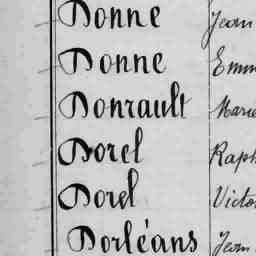 Donne Jean
Donne Emm
Donrault Marie
Dorel Raph
Dorel Victo
Dorléans Jean